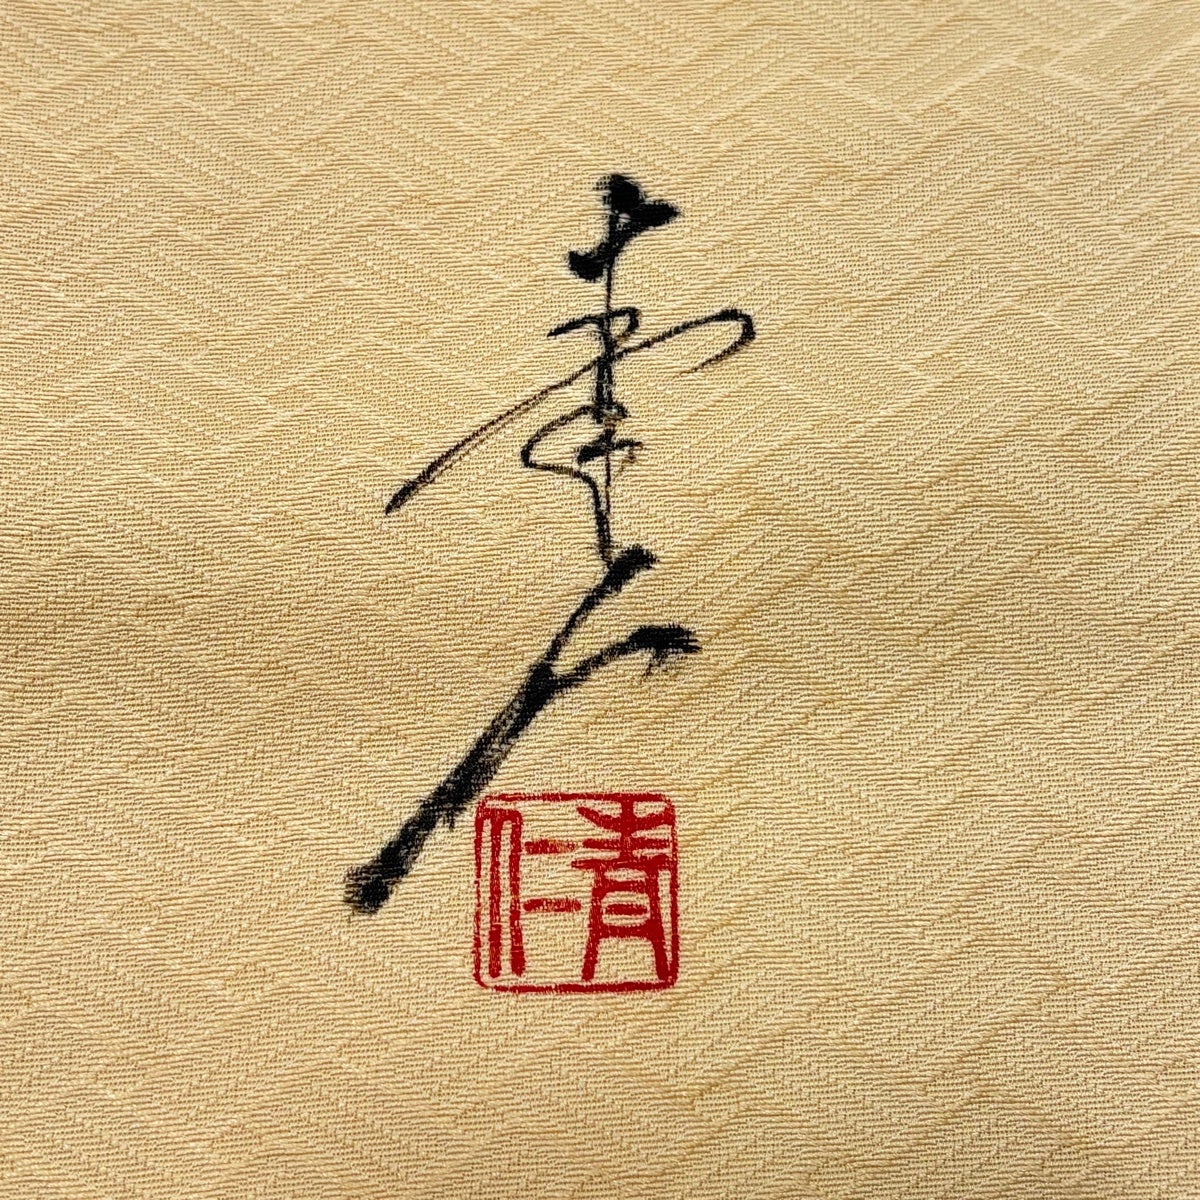 青仁
青仁